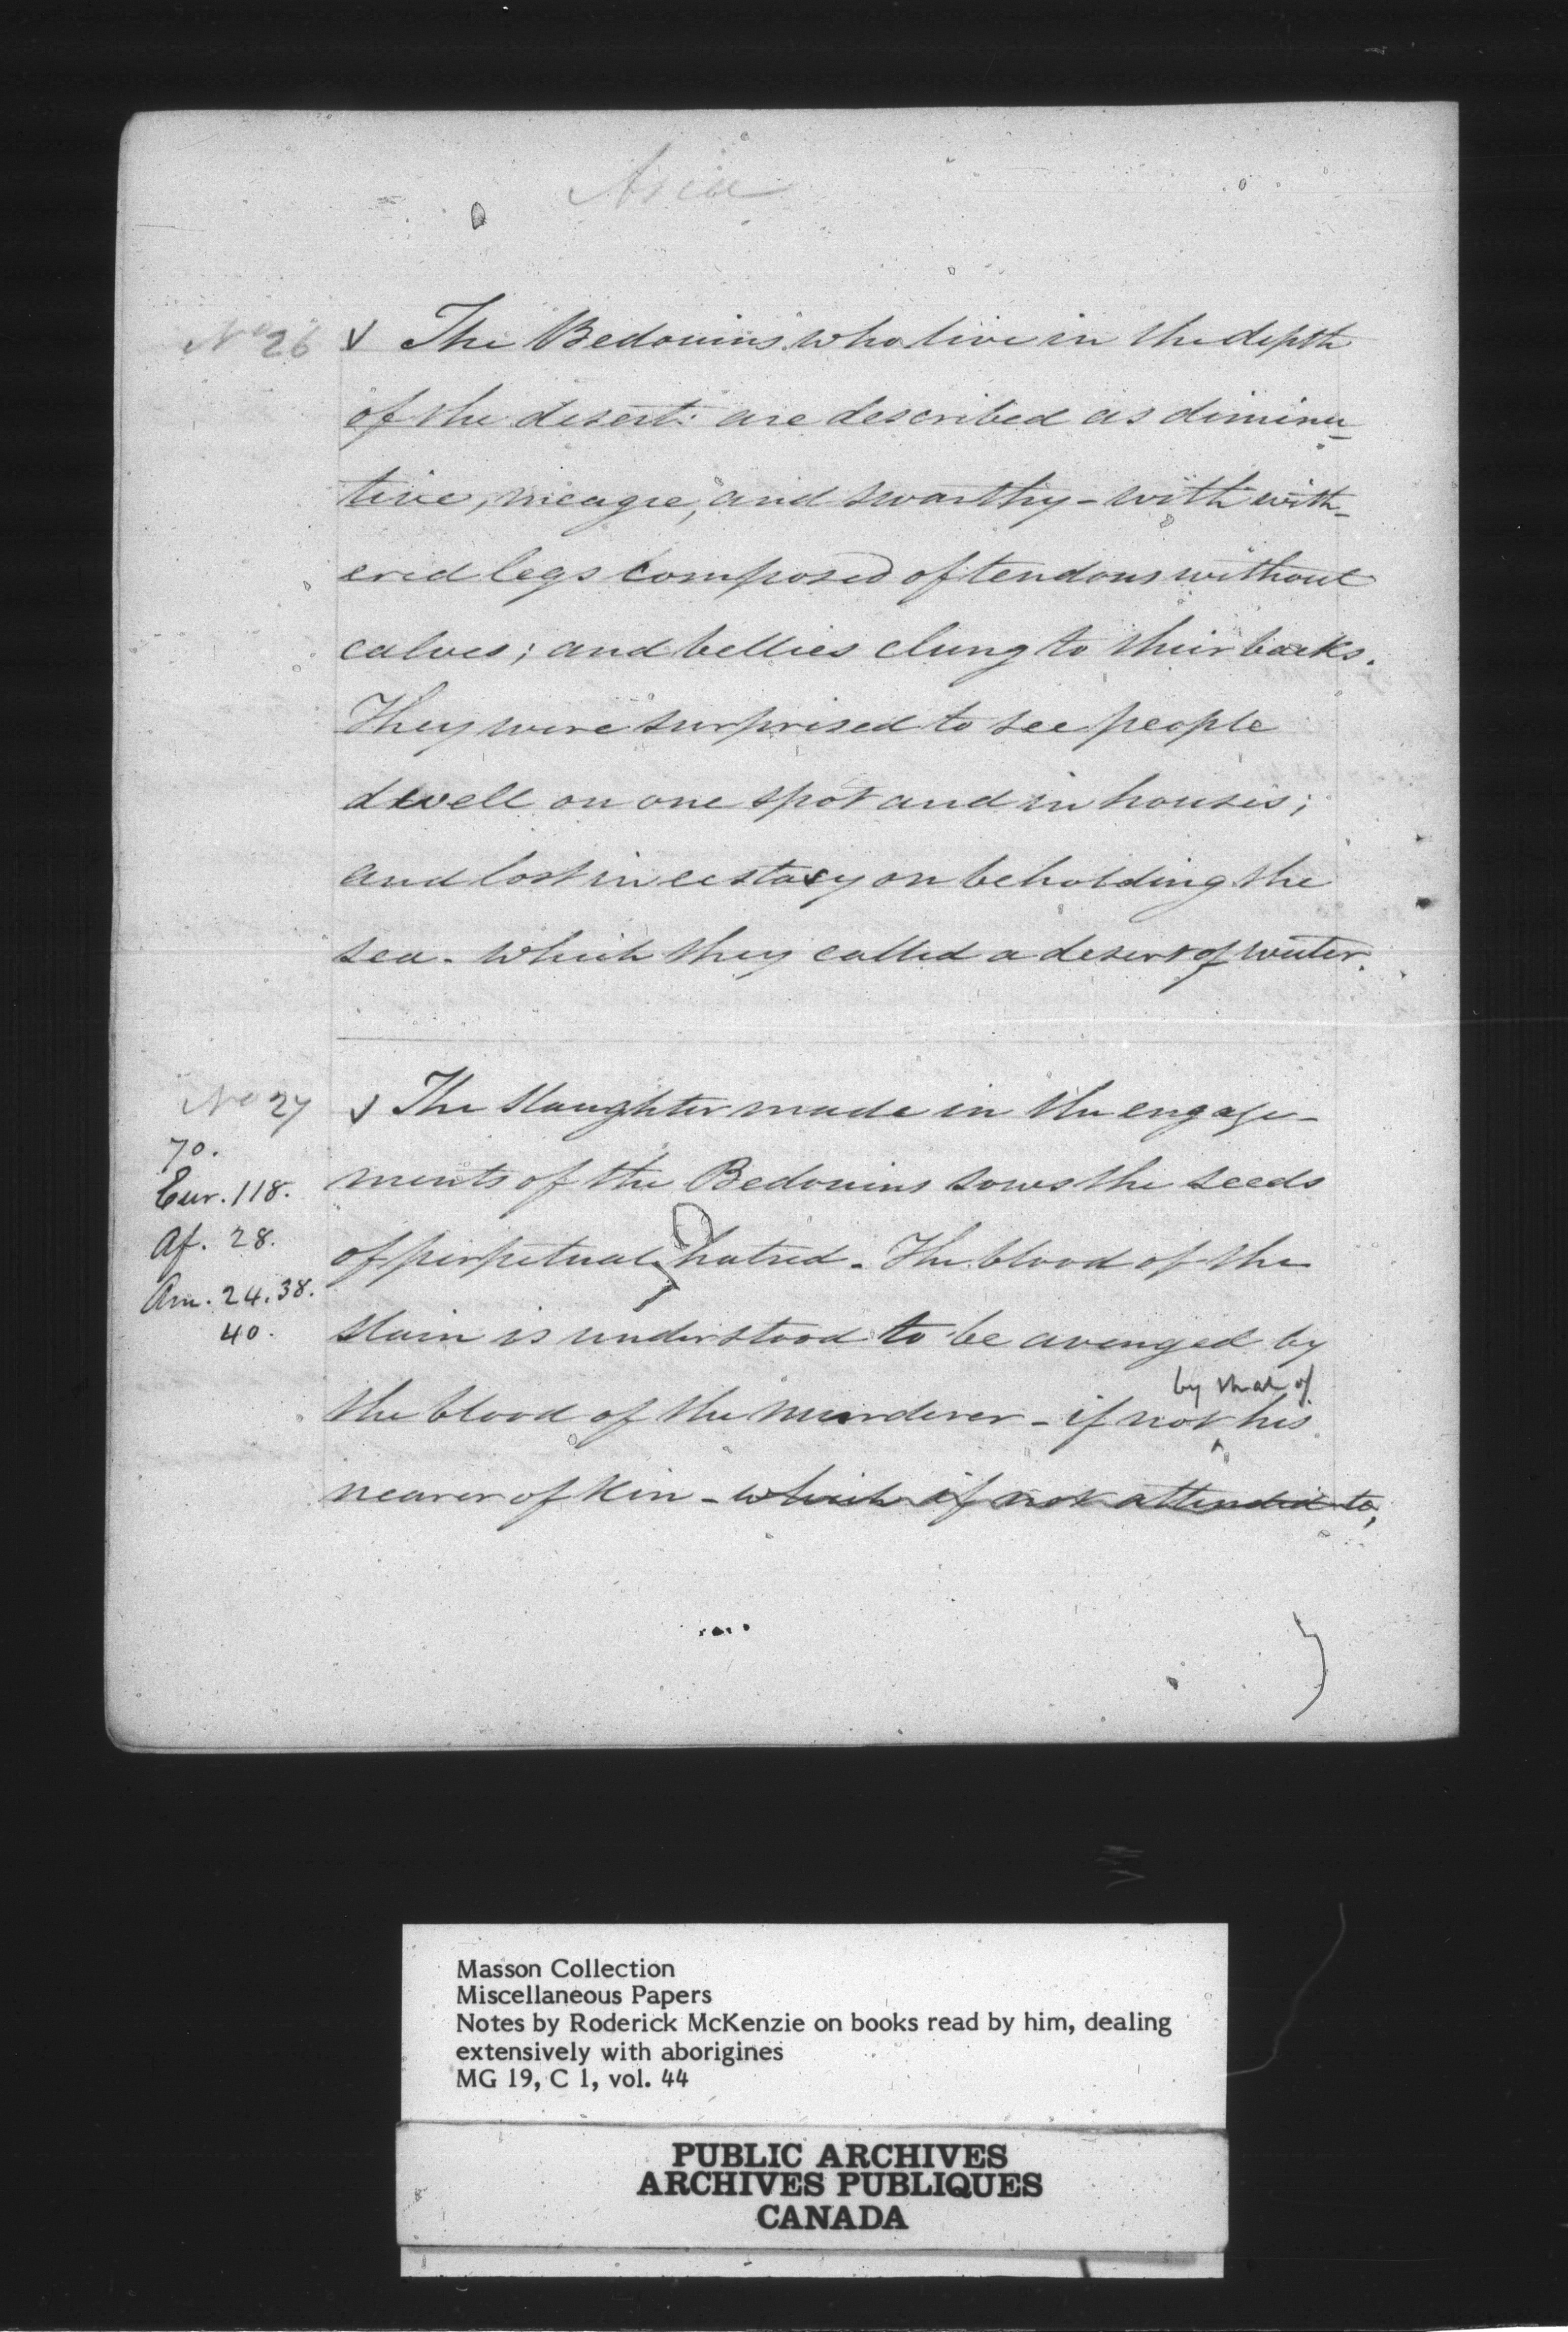 Asia
No 26 The Bedouins who live in the depth
of the desert: are described as diminu-
tive, meagre, and swarthy - with with-
ered legs composed of tendons without
calves; and bellies clung to their backs.
They were surprised to see people
dwell on one spot and in houses;
and lost in ecstasy on beholding the
sea - which they called a desert of water.
No 27 The slaughter made in the engage-
70.
Eur. 118. ments of the Bedouins sows the seeds
Af. 28. of perpetual hatred - The blood of the
Am. 24. 38.
40. slain is understood to be avenged by
by that of
the blood of the murderer - if not his
nearer of kin - which if not attended to,
Masson Collection
Miscellaneous Papers
Notes by Roderick McKenzie on books read by him, dealing
extensively with aborigines
MG 19, C 1, vol. 44
PUBLIC ARCHIVES
ARCHIVES PUBLIQUES
CANADA